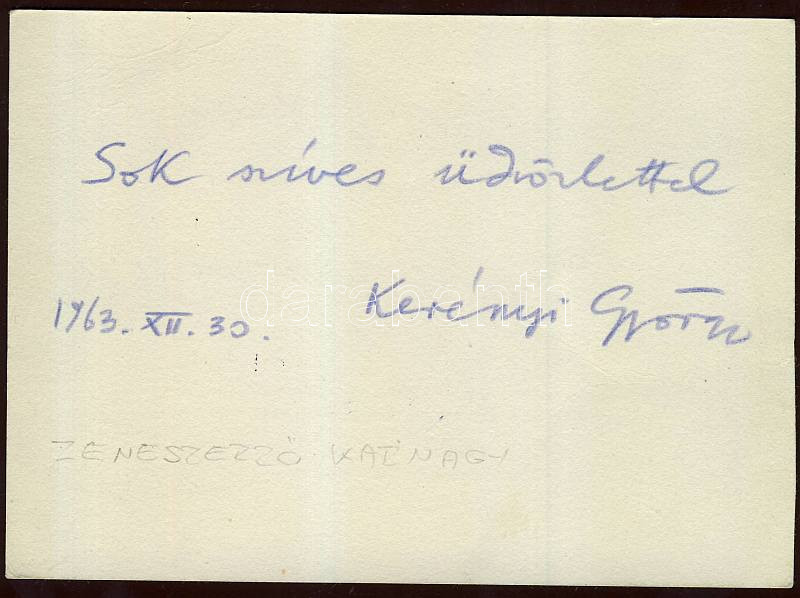 Sok szíves üdvözlettel
1963. XII. 30. Kerényi György
darabanth
ZENESZERZŐ KARNAGY